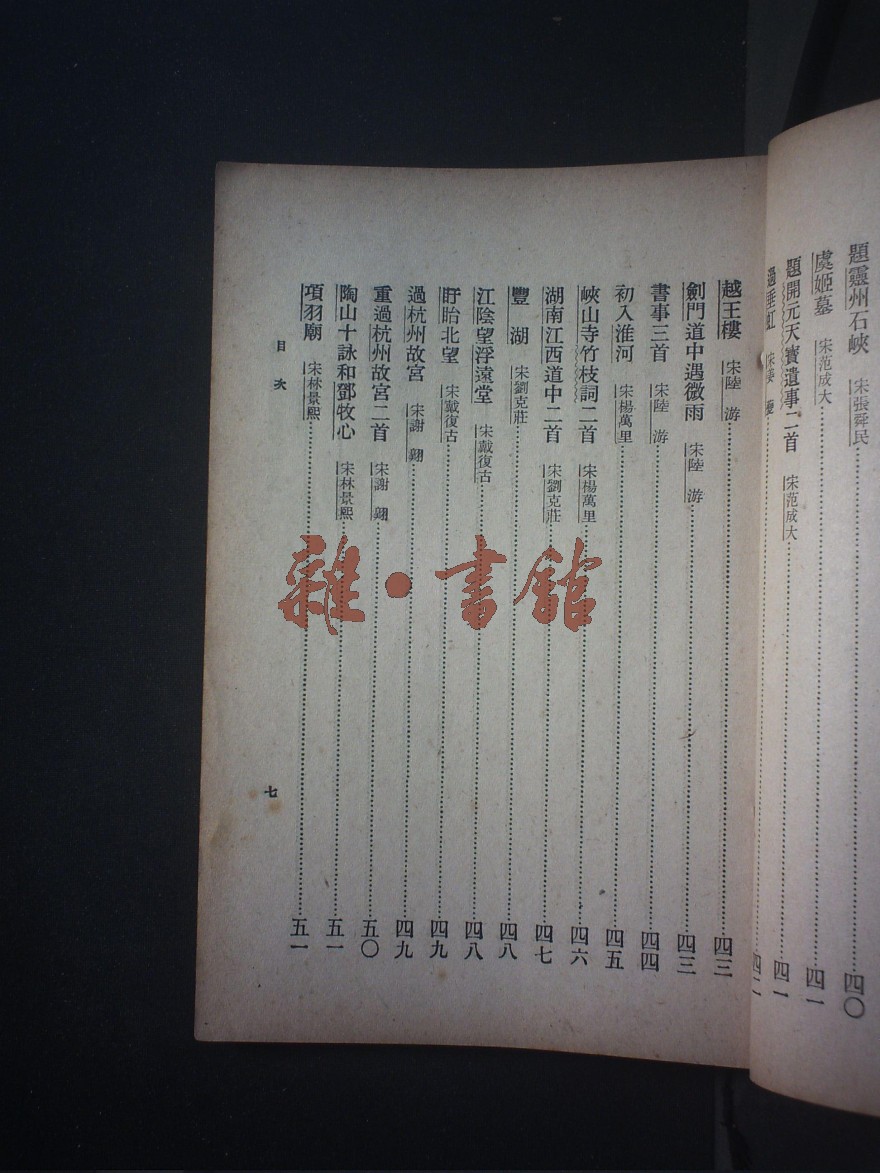 題靈州石峽 宋張舜民 四〇
虞姬墓 宋范成大 四一
題開元天寶遺事二首 宋范成大 四一
過垂虹 宋姜 夔 四二
越王樓 宋陸 游 四三
劍門道中遇微雨 宋陸 游 四三
書事三首 宋陸 游 四四
初入淮河 宋楊萬里 四五
峽山寺竹枝詞二首 宋楊萬里 四六
湖南江西道中二首 宋劉克莊 四七
豐 湖 宋劉克莊 四八
江陰望浮遠堂 宋戴復古 四八
盱眙北望 宋戴復古 四九
過杭州故宮 宋謝 翱 四九
重過杭州故宮二首 宋謝 翱 五〇
陶山十詠和鄧牧心 宋林景熙 五一
項羽廟 宋林景熙 五一
目次
七
雜·書館